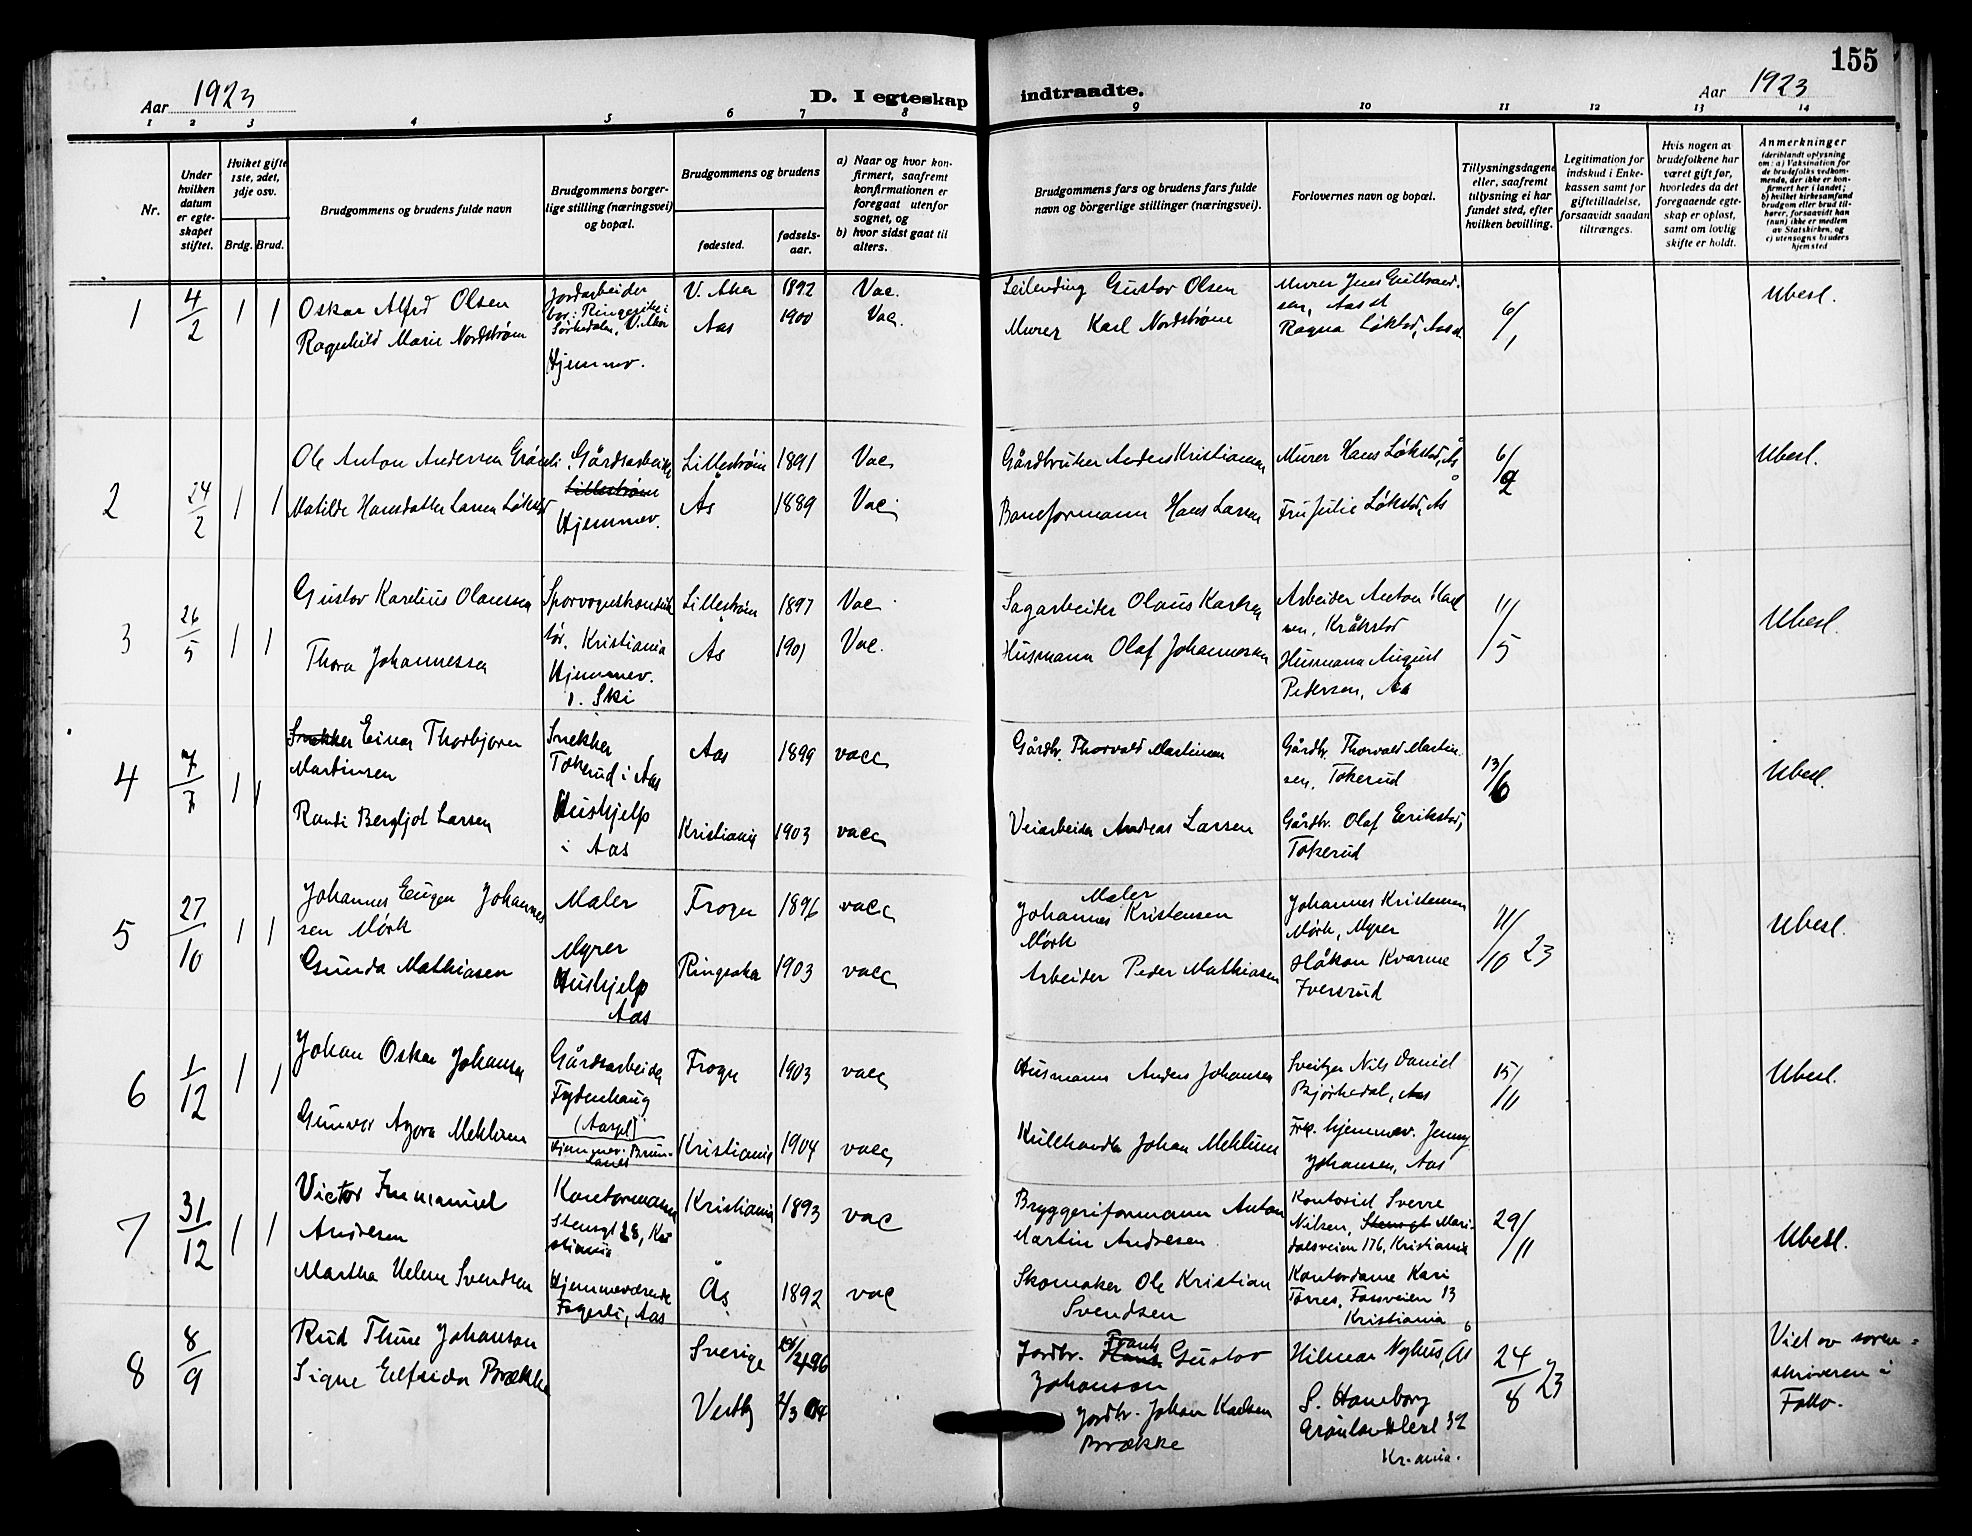 155
Aar 1923
D. I egteskap indtraadte.
Aar 1923
1 2 3 4 5 6 7 8 9 10 11 12 13 14
Nr.
Under hvilken datum er egteskapet stiftet.
Hviket gifte 1ste, 2det, 3dje osv.
Brdg. Brud.
Brudgommens og brudens fulde navn
Brudgommens borgerlige stilling (næringsvei) og bopæl.
Brudgommens og brudens
fødested.
fødselsaar.
a) Naar og hvor konfirmert, saafremt konfirmationen er foregaat utenfor sognet, og
b) hvor sidst gaat til alters.
Brudgommens fars og brudens fars fulde navn og borgerlige stillinger (næringsvei).
Forlovernes navn og bopæl.
Tillysningsdagene eller, saafremt tillysning ei har fundet sted, efter hvilken bevilling.
Legitimation for indskud i Enkekassen samt for giftetilladelse, forsaavidt saadan tiltrænges.
Hvis nogen av brudefolkene har været gift før, hvorledes da det foregaaende egteskap er opløst, samt om lovlig skifte er holdt.
Anmerkninger
(deriblandt oplysning om: a) Vaksination for de brudefolks vedkommende, der ikke er konfirmert her i landet; b) hvilket kirkesamfund brudgom eller brud tilhører, forsaavidt han (hun) ikke er medlem av Statskirken, og c) utensogns bruders hjemsted
1 4/2 1 1 Oskar Alfred Olsen
Jordarbeider
Sørkedalen, V. Aker
V. Aker 1892 Vac.
Leilending Gustav Olsen
Murer Jens Gulbrandsen, Aas st
6/1
Ubesl.
Ragnhild Marie Nordstrøm
Hjemmev.
Aas 1900 Vac.
Murer Karl Nordstrøm
Ragna Løkstad, Aas st
2 24/2 1 1 Ole Anton Andersen
Gårdsarbeider
Lillestrøm
Lillestrøm 1891 Vac
Gårdbruker Anders Kristiansen
Murer Hans Løkstad, Ås
6/2
Ubesl.
Matilde Hansdatter Larsen Løkstad
Hjemmev.
Ås 1889 Vac.
Baneformann Hans Larsen
Fru Julie Løkstad, Ås
3 26/5 1 1 Gustav Karelius Olaussen
Sporvognskonduktør, Kristiania
Lillestrøm 1897 Vac
Sagarbeider Olaus Karlsen
Arbeider Anton Karlsen, Kråkstad
11/5
Ubesl.
Thora Johannessen
Hjemmev. v. Ski
Ås 1901 Vac.
Husmann Olaf Johannesen
Husmann August Pedersen, Ås
4 7/7 1 1 Snekker Einar Thorbjørn Martinsen
Snekker
Tokerud i Aas
Aas 1899 vacc
Gårdbr. Thorvald Martinsen
Gårdbr. Thorvald Martinsen, Tokerud
13/6
Ubesl.
Randi Bergljot Larsen
Hushjelp i Aas
Kristiania 1903 vacc
Veiarbeider Andreas Larsen
Gårdbr. Olaf Erikstad, Tokerud
5 27/10 1 1 Johannes Eugen Johannessen Mørk
Maler
Myrer
Frogn 1896 vacc
Maler
Johannes Kristensen Mørk
Johannes Kristensen Mørk, Myrer
11/10 23
Ubesl.
Gunda Mathiasen
Hushjelp Aas
Ringsaker 1903 vacc
Arbeider Peder Mathiasen
Håkon Kvarme Iversrud
6 1/12 1 1 Johan Oskar Johansen
Gårdsarbeider
Frogn 1903 vacc
Husmann Anders Johansen
Nils Daniel Bjørkedal, Aas
15/11
Ubesl.
Gunvor Agora
Hjemmev.
Kristiania 1904 vacc
Johan
Frk. hjemmev. Jenny Johansen, Aas
7 31/12 1 1 Victor Immanuel Andresen
Kontormann
Stensgt 28, Kristiania
Kristiania 1893 vac
Bryggeriformann Anton Martin Andresen
Kontorist Sverre Nilsen, Stensgt Maridalsveien 176, Kristiania
29/11
Ubesl.
Martha Helene Svendsen
Hjemmeværende
Fagerli, Aas
Ås 1892 vac
Skomaker Ole Kristian Svendsen
Kontordame Kari Torres, Fossveien 13 Kristiania
8 8/9 Rud Thure Johanson
Sverige
Jordbr. Hans Frank Gustav Johanson
Hilmar Nyhus, Ås
24/8 23
Viet av sorenskriveren i Follo.
Signe Elfrida Brække
Vestby 2/3 04
Jordbr. Johan Karlsen Brække
S. Haneborg
Grønlandsleret 32
Kr.ania.